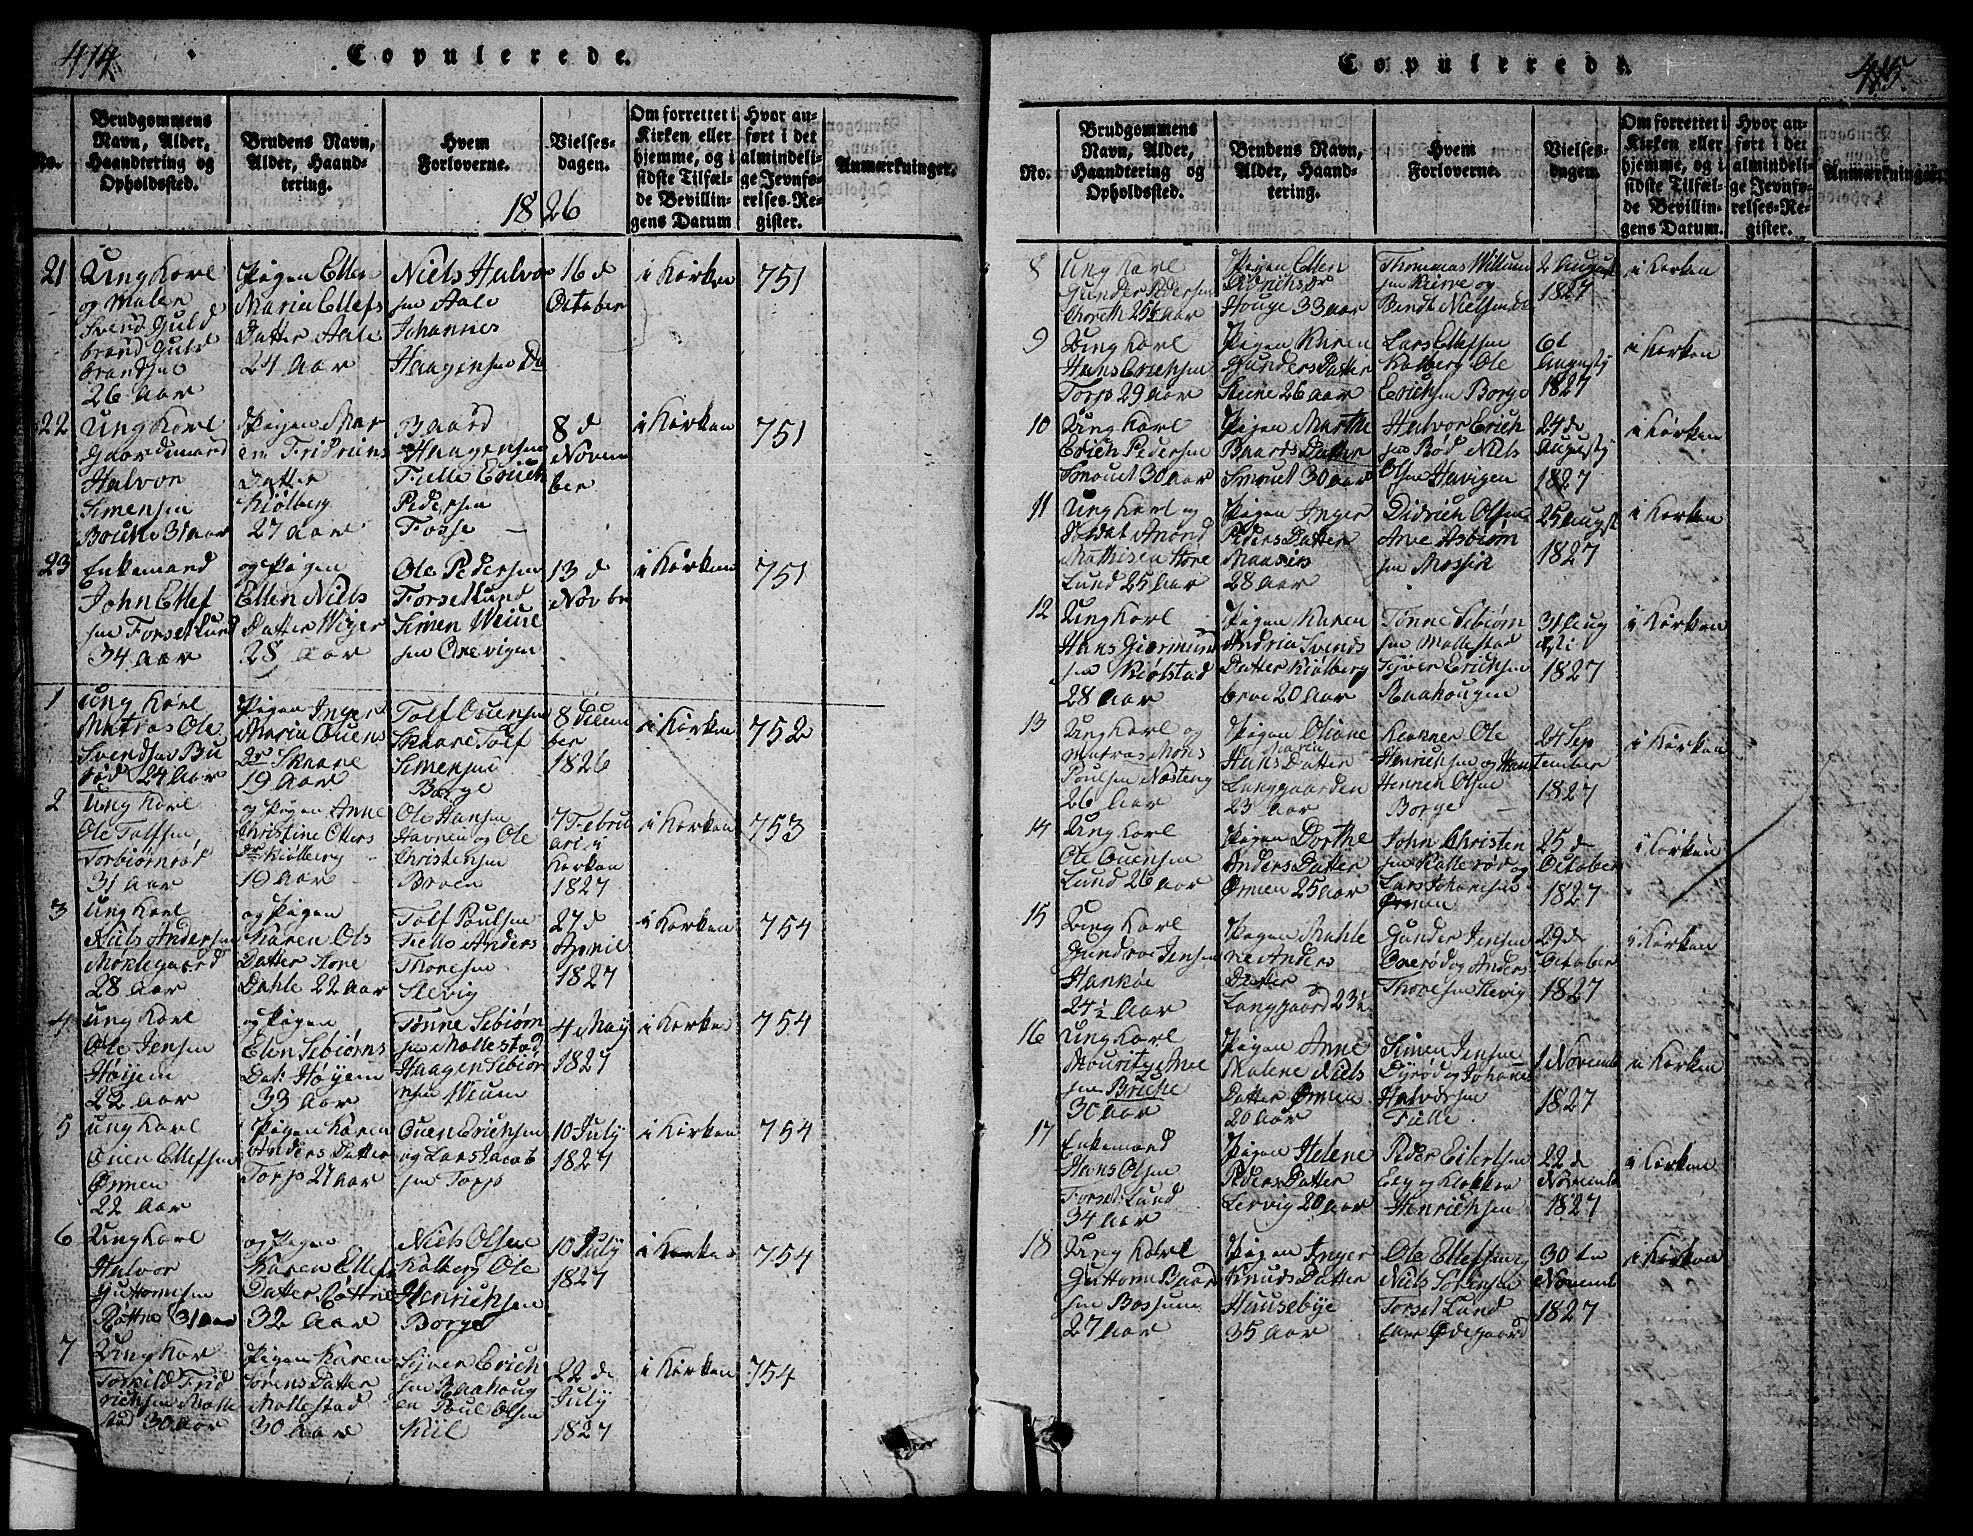 414.
Copulerede.
No.
Brudgommens
Navn, Alder,
Haandtering og
Opholdssted.
Brudens Navn,
Alder, Haand-
tering.
Hvem
Forloverne.
Vielses-
dagen.
Om forrettet i
Kirken eller
hjemme, og i
sidste Tilfæl-
de Bevillin-
gens Datum
Hvor an-
ført i det
almindeli-
ge Jevnfø-
relses-Re-
gister.
Anmærkninger.
1826
21
Ung Karl
og Maler
Svend Guld
brand Guld
brandsen
26 Aar
Pigen Ellen
Maria Ellefs
Datter Aale
24 Aar
Niels Halvor
sen Aale
Johannes
Haagensen
16 d
October
i Kirken
751
22
Ung Karl
Gaardmand
Halvor
Simensen
31 Aar
Pigen Mar
en Fridrichs
Datter
Kiølberg
27 Aar
Baard
Haagensen
Fielle Erich
Pedersen
Fosse
8 d
Novem
ber
i Kirken
751
23
Enkemand
John Ellef
sen Forsetlund
34 Aar
og Pigen
Ellen Niels
Datter Wiger
28 Aar
Ole Pedersen
Forsetlund
Simen
sen Orevigen
13 d
Novbr
i Kirken
751
1
Ung Karl
Matros Ole
Svendsen Bu
rød 24 Aar
Pigen Inger
Maria Ouens
Dr Skaare
19 Aar
Tolf Ouensen
Skaare Tolf
Simensen
Borge
8 Decem
ber
1826
i Kirken
752
2
Ung Karl
Ole Tolfsen
Torbiørnrød
31 Aar
og Pigen Anne
Christine Olers
Dr Kiølberg
19 Aar
Ole Hansen
Havnen og Ole
Christensen
Broen
7 Febru
ari i
Kirken
1827
i Kirken
753
3
Ung Karl
Niels Andersen
Moklegaard
28 Aar
og Pigen
Karen Ols
Datter Store
Dahle 22 Aar
Tolf Poulsen
Anders
Thoresen
Slevig
27 d
April
1827
i Kirken
754
4
Ung Karl
Ole Jensen
Høyem
22 Aar
og Pigen
Elen Sebiørns
Dat. Høyem
33 Aar
Tønne Sebiørn
sen Mallestad
Haagen Sebiør
nsen Wium
4 May
1827
i Kirken
754
5
Ung Karl
Ouen Ellefsen
Ørmen
22 Aar
Pigen Karen
Anders Datter
Torp 27 Aar
Ouen Erichsen
og Lars Jacob
sen Torp
10 July
1827
i Kirken
754
6
Ung Karl
Halvor
Guttormsen
Røttne 31 Aar
og Pigen
Karen Ellefs
Datter Røttne
32 Aar
Niels Olsen
Kølberg Ole
Henrichsen
Borge
10 July
1827
i Kirken
754
7
Ung Kar
Torkild Frid
richsen Malle
stad 30 Aar
Pigen Karen
Sørens Datter
Mallestad
30 Aar
Syver Erich
sen Raahoug
en Poul Olsen
Kiil
22 de
July
1827
i Kirken
754
415.
Copulerede.
No.
Brudgommens
Navn, Alder,
Haandtering og
Opholdssted.
Brudens Navn,
Alder, Haand-
tering.
Hvem
Forloverne.
Vielses-
dagen.
Om forrettet i
Kirken eller
hjemme, og i
sidste Tilfæl-
de Bevillin-
gens Datum.
Hvor an-
ført i det
almindeli-
ge Jevnfø-
relses-Re-
gister.
Anmærkninger.
8
Ung Karl
Gunder Pedersen
25½ Aar
Pigen Ellen
Didrichsdr
Houge 33 Aar
Thommas Willum
sen Kierre og
Bendt Nielsen
2 August
1827
i Kirken
9
Ung Karl
Hans Erichsen
Torp 29 Aar
Pigen Karen
Gunders Datter
26 Aar
Lars Ellefsen
Kølberg Ole
Erichsen Borge
6t
Augusty
1827
i Kirken
10
Ung Karl
Erich Pedersen
Smouet 30 Aar
Pigen Marthe
Baards Datter
Smouet 30 Aar
Halvor Erich
sen Rød Niels
Olsen Havigen
24 de
Augusty
1827
i Kirken
11
Ung Karl og
Soldat Amond
Mathisen Store
Lund 25 Aar
Pigen Inger
Peders Datter
28 Aar
Didrich Olsen
Arve Asbiørn
sen
25 August
1827
i Kirken
12
Ung Karl
Hans Giermund
sen Kiølstad
28 Aar
Pigen Karen
Andria Svends
Datter Kiølberg
broe 20 Aar
Tønne Sebiørn
sen Mallestad
Syver Erichsen
Raahougen
31 Aug
sti
1827
i Kirken
13
Ung Karl og
Matros Mons
Poulsen Nøsteng
26 Aar
Pigen Oliane
Maria
Hans Datter
Langgaarden
23 Aar
Klokker Ole
Henrichsen og
Henrich Olsen
Borge
24 Sep
tember
1827
i Kirken
14
Ung Karl
Ole Ouensen
Lund 26 Aar
Pigen Dorthe
Anders Datter
Ørmen 25 Aar
John Christen
sen Katterød og
Lars Johanesen
Ørmen
25 d
October
1827
i Kirken
15
Ung Karl
Gundro Jensen
Hankøe
24½ Aar
Pigen Mahle
ne Anders
Datter
Langgaard 23½
Gunder Jensen
Ourød og Anders
Thoresen Slevig
29 d
October
1827
i Kirken
16
Ung Karl
Mouritz Arve
sen Briche
30 Aar
Pigen Anne
Malene Niels
Datter Ørmen
20 Aar
Simen Jensen
Dyrød og Johanes
Halvorsen
Fielle
1 Novemb
1827
i Kirken
17
Enkemand
Hans Olsen
Forset Lund
34 Aar
Pigen Helene
Peders Datter
Lervig 20 Aar
Peder Eilertsen
Elg og Klokker
Henrichsen
22 d
Novemb
1827
i Kirken
18
Ung Karl
Guttorm Baard
sen Bossum
27 Aar
Pigen Inger
Knuds Datter
Huusebye
35 Aar
Ole Ellefsen
Niels Sørensen
Forset Lund
Ødegaard
30 te
Novemb
1827
i Kirken